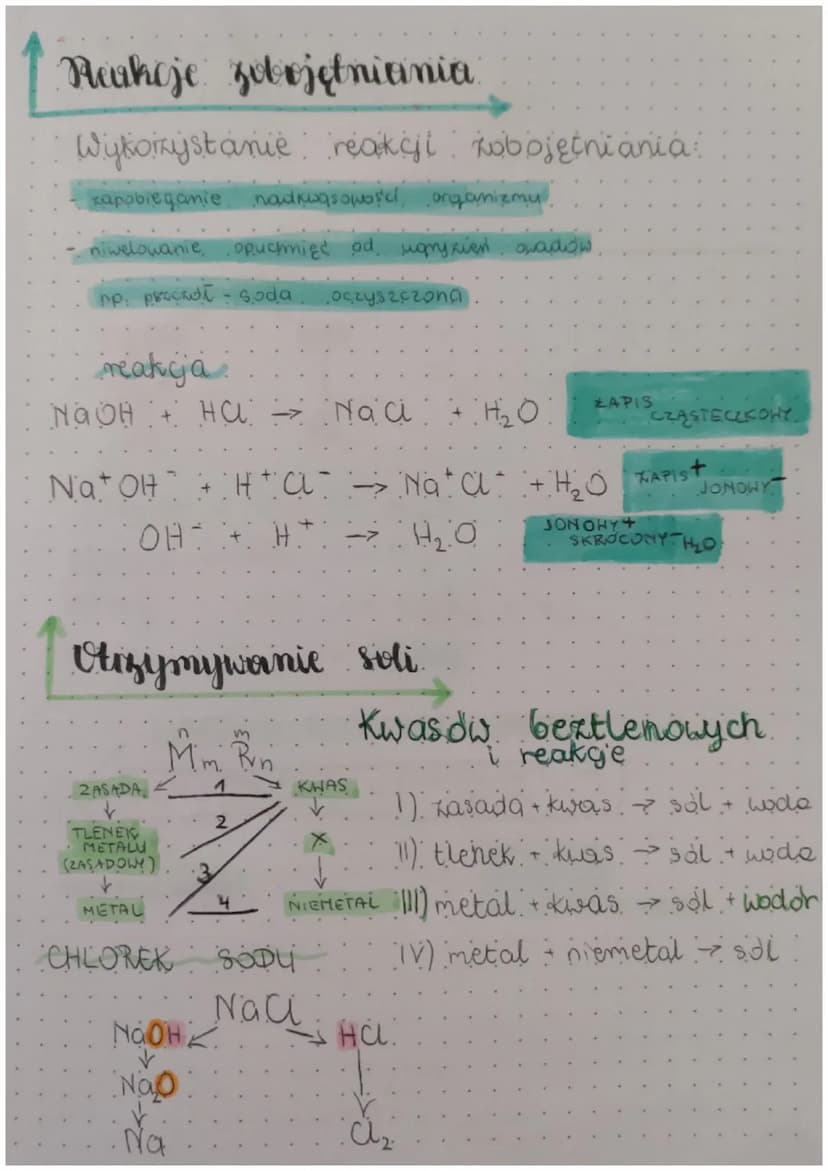 Reakcje zobojętniania
Wykorzystanie reakcji zobojętniania:
- zapobieganie nadkwasowości organizmu
- niwelowanie opuchnięć od ugryzień owadów
np. pszczół - soda oczyszczona
reakcja
NaOH + HCl → NaCl + H₂O ZAPIS CZĄSTECZKOWY
Na⁺OH⁻ + H⁺Cl⁻ → Na⁺Cl⁻ + H₂O ZAPIS + JONOWY -
OH⁻ + H⁺ → H₂O JONOWY + SKRÓCONY - H₂O
Otrzymywanie soli
Kwasów beztlenowych
i reakcje
n m
Mₘ Rₙ
ZASADA 1 KWAS
TLENEK METALU (ZASADOWY) 2 X
3
METAL 4 NIEMETAL
I) zasada + kwas → sól + woda
II) tlenek + kwas → sól + woda
III) metal + kwas → sól + wodór
IV) metal + niemetal → sól
CHLOREK SODU
NaCl
NaOH HCl
Na₂O
Na Cl₂